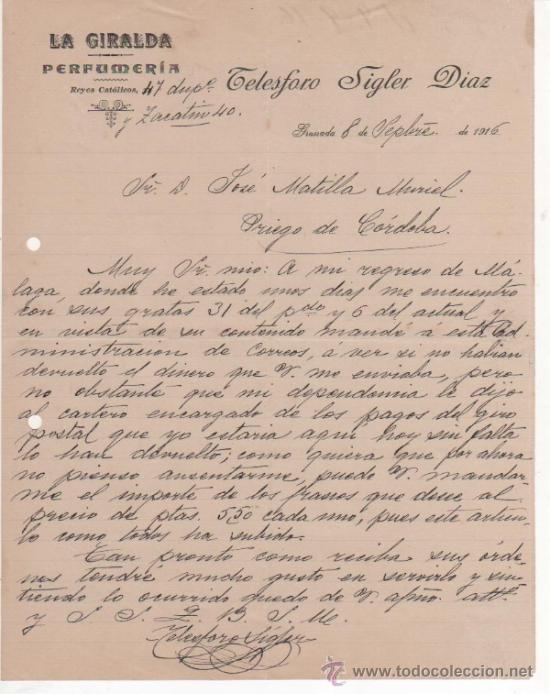 LA GIRALDA
PERFUMERÍA
Reyes Católicos, 47 dupº
y Zacatín 40.
Telesforo Sigler Diaz
Granada 8 de Sepbre. de 1916
Sr. D. José Matilla Muriel.
Priego de Córdoba.
Muy Sr. mio: A mi regreso de Má-
laga, donde he estado unos dias, me encuentro
con sus gratas 31 del pdo y 6 del actual y
en vista de su contenido mandé á esta Ad-
ministracion de Correos, á ver si no habian
devuelto el dinero que V. me enviaba, pero
no obstante que mi dependencia le dijo
al cartero encargado de los pagos del giro
postal que yo estaria aqui hoy sin falta
lo han devuelto; como quiera que por ahora
no pienso ausentarme, puede V. mandar-
me el importe de los frascos que desee al
precio de ptas. 5,50 cada uno, pues este artícu-
lo como todos ha subido.
Tan pronto como reciba sus órde-
nes tendré mucho gusto en servirlo y sin-
tiendo lo ocurrido quedo de V. afmo. attº.
y S. S. Q. B. S. M.
Telesforo Sigler
todocoleccion
www.todocoleccion.net